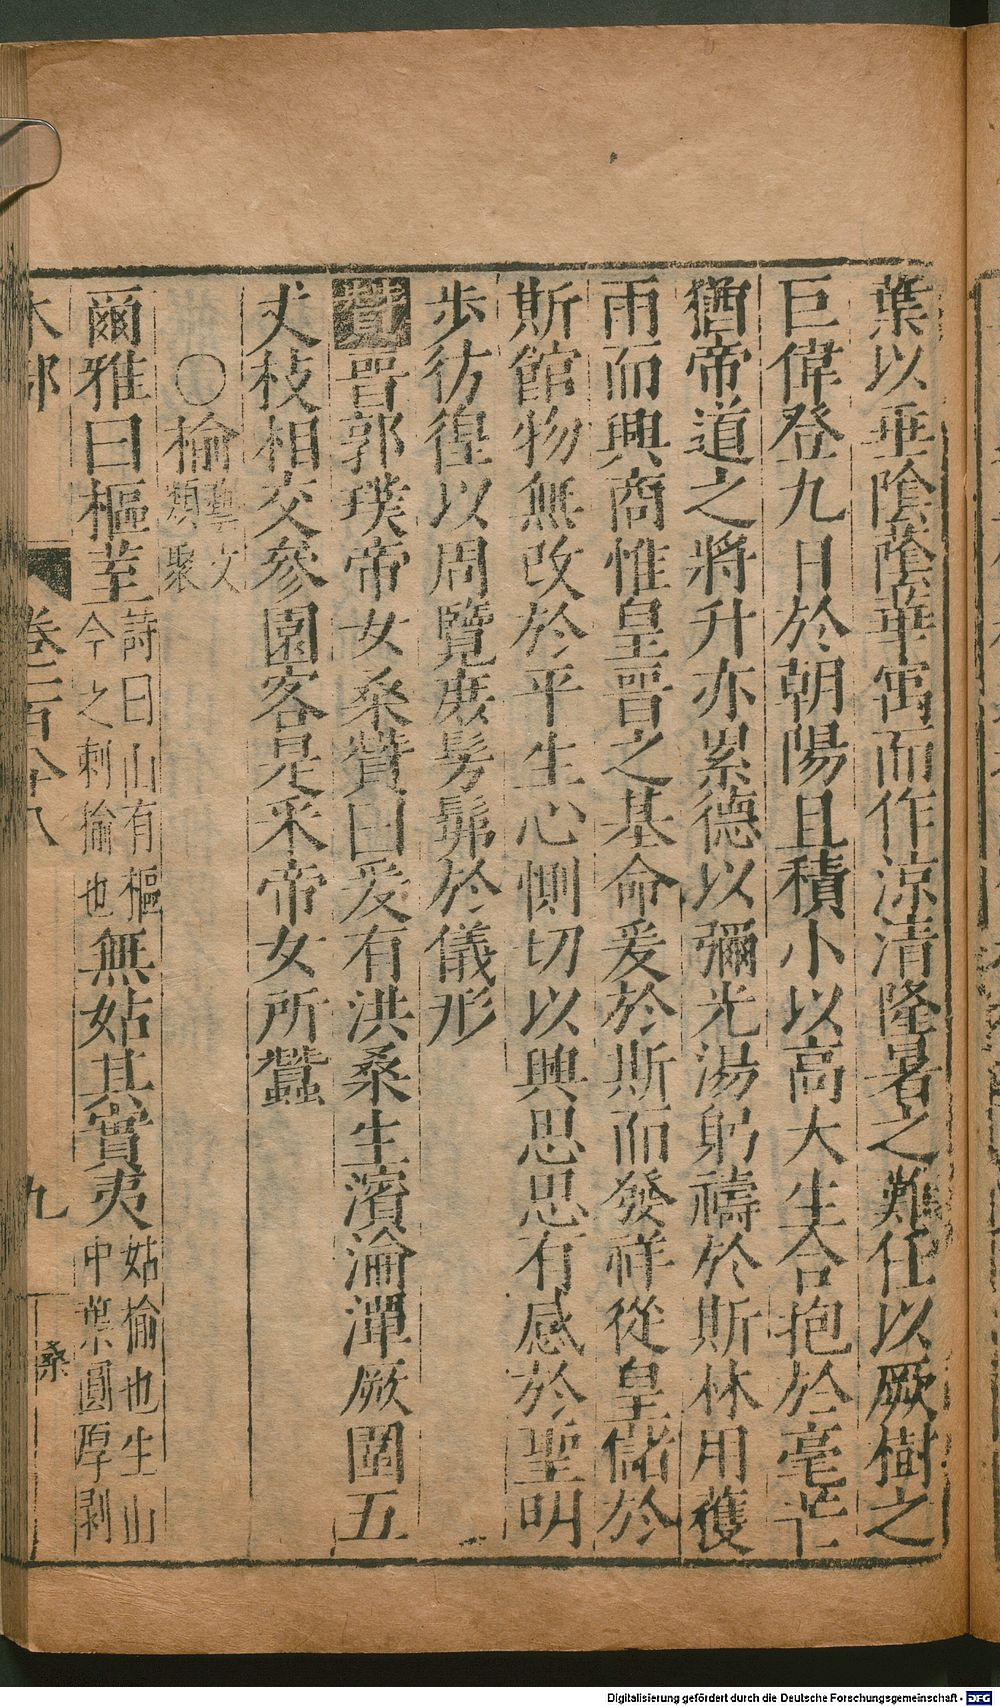 葉以垂陰蔭華㝢而作涼清隆暑之難任以厥樹之
巨偉登九日於朝陽且積小以高大生合抱於毫芒
猶帝道之將升亦累德以彌光湯躬禱於斯林用獲
雨而興商惟皇晉之基命爰於斯而發祥從皇儲於
斯館物無改於平生心惻切以興思思有感於聖明
步彷徨以周覽庶髣髴於儀形
賛晉郭璞帝女桑贊曰爰有洪桑生濱淪潬厥圍五
丈枝相交參園客是采帝女所蠶
○榆藝文類聚
爾雅曰樞荎詩曰山有樞今之刺揄也無姑其實夷姑榆也生山中葉圓厚剥
木部
卷二百八十八
九
桑
Digitalisierung gefördert durch die Deutsche Forschungsgemeinschaft - DFG